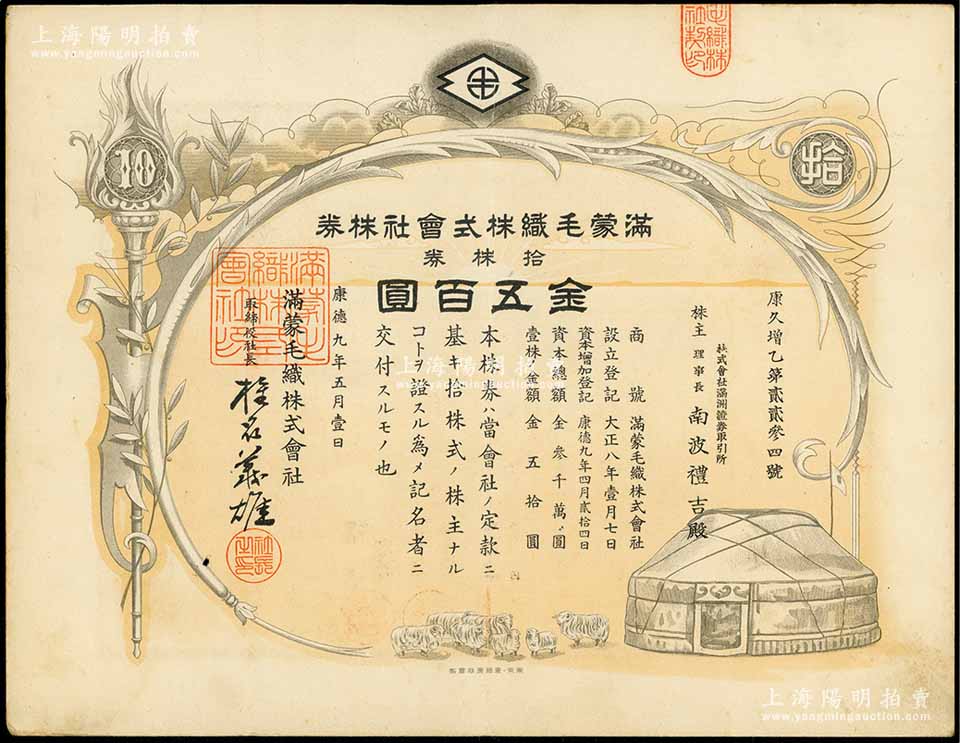 上海陽明拍賣
www.yangmingauction.com
上海陽明拍賣
www.yangmingauction.com
10
拾
滿蒙毛織株式會社株券
拾株券
金五百圓
康久增乙第貳貳參四號
株式會社滿洲證券取引所
株主 理事長 南波禮吉殿
商號 滿蒙毛織株式會社
設立登記 大正八年壹月七日
資本增加登記 康德九年四月貳拾四日
資本總額 金參千萬圓
壹株金額 金五拾圓
本株券ハ當會社ノ定款ニ
基キ拾株式ノ株主ナル
コトヲ證スル爲メ記名者ニ
交付スルモノ也
康德九年五月壹日
滿蒙毛織株式會社
取締役社長 椎名義雄
滿蒙毛織株式會社印
社長之印
上海陽明拍賣
www.yangmingauction.com
上海陽明拍賣
www.yangmingauction.com